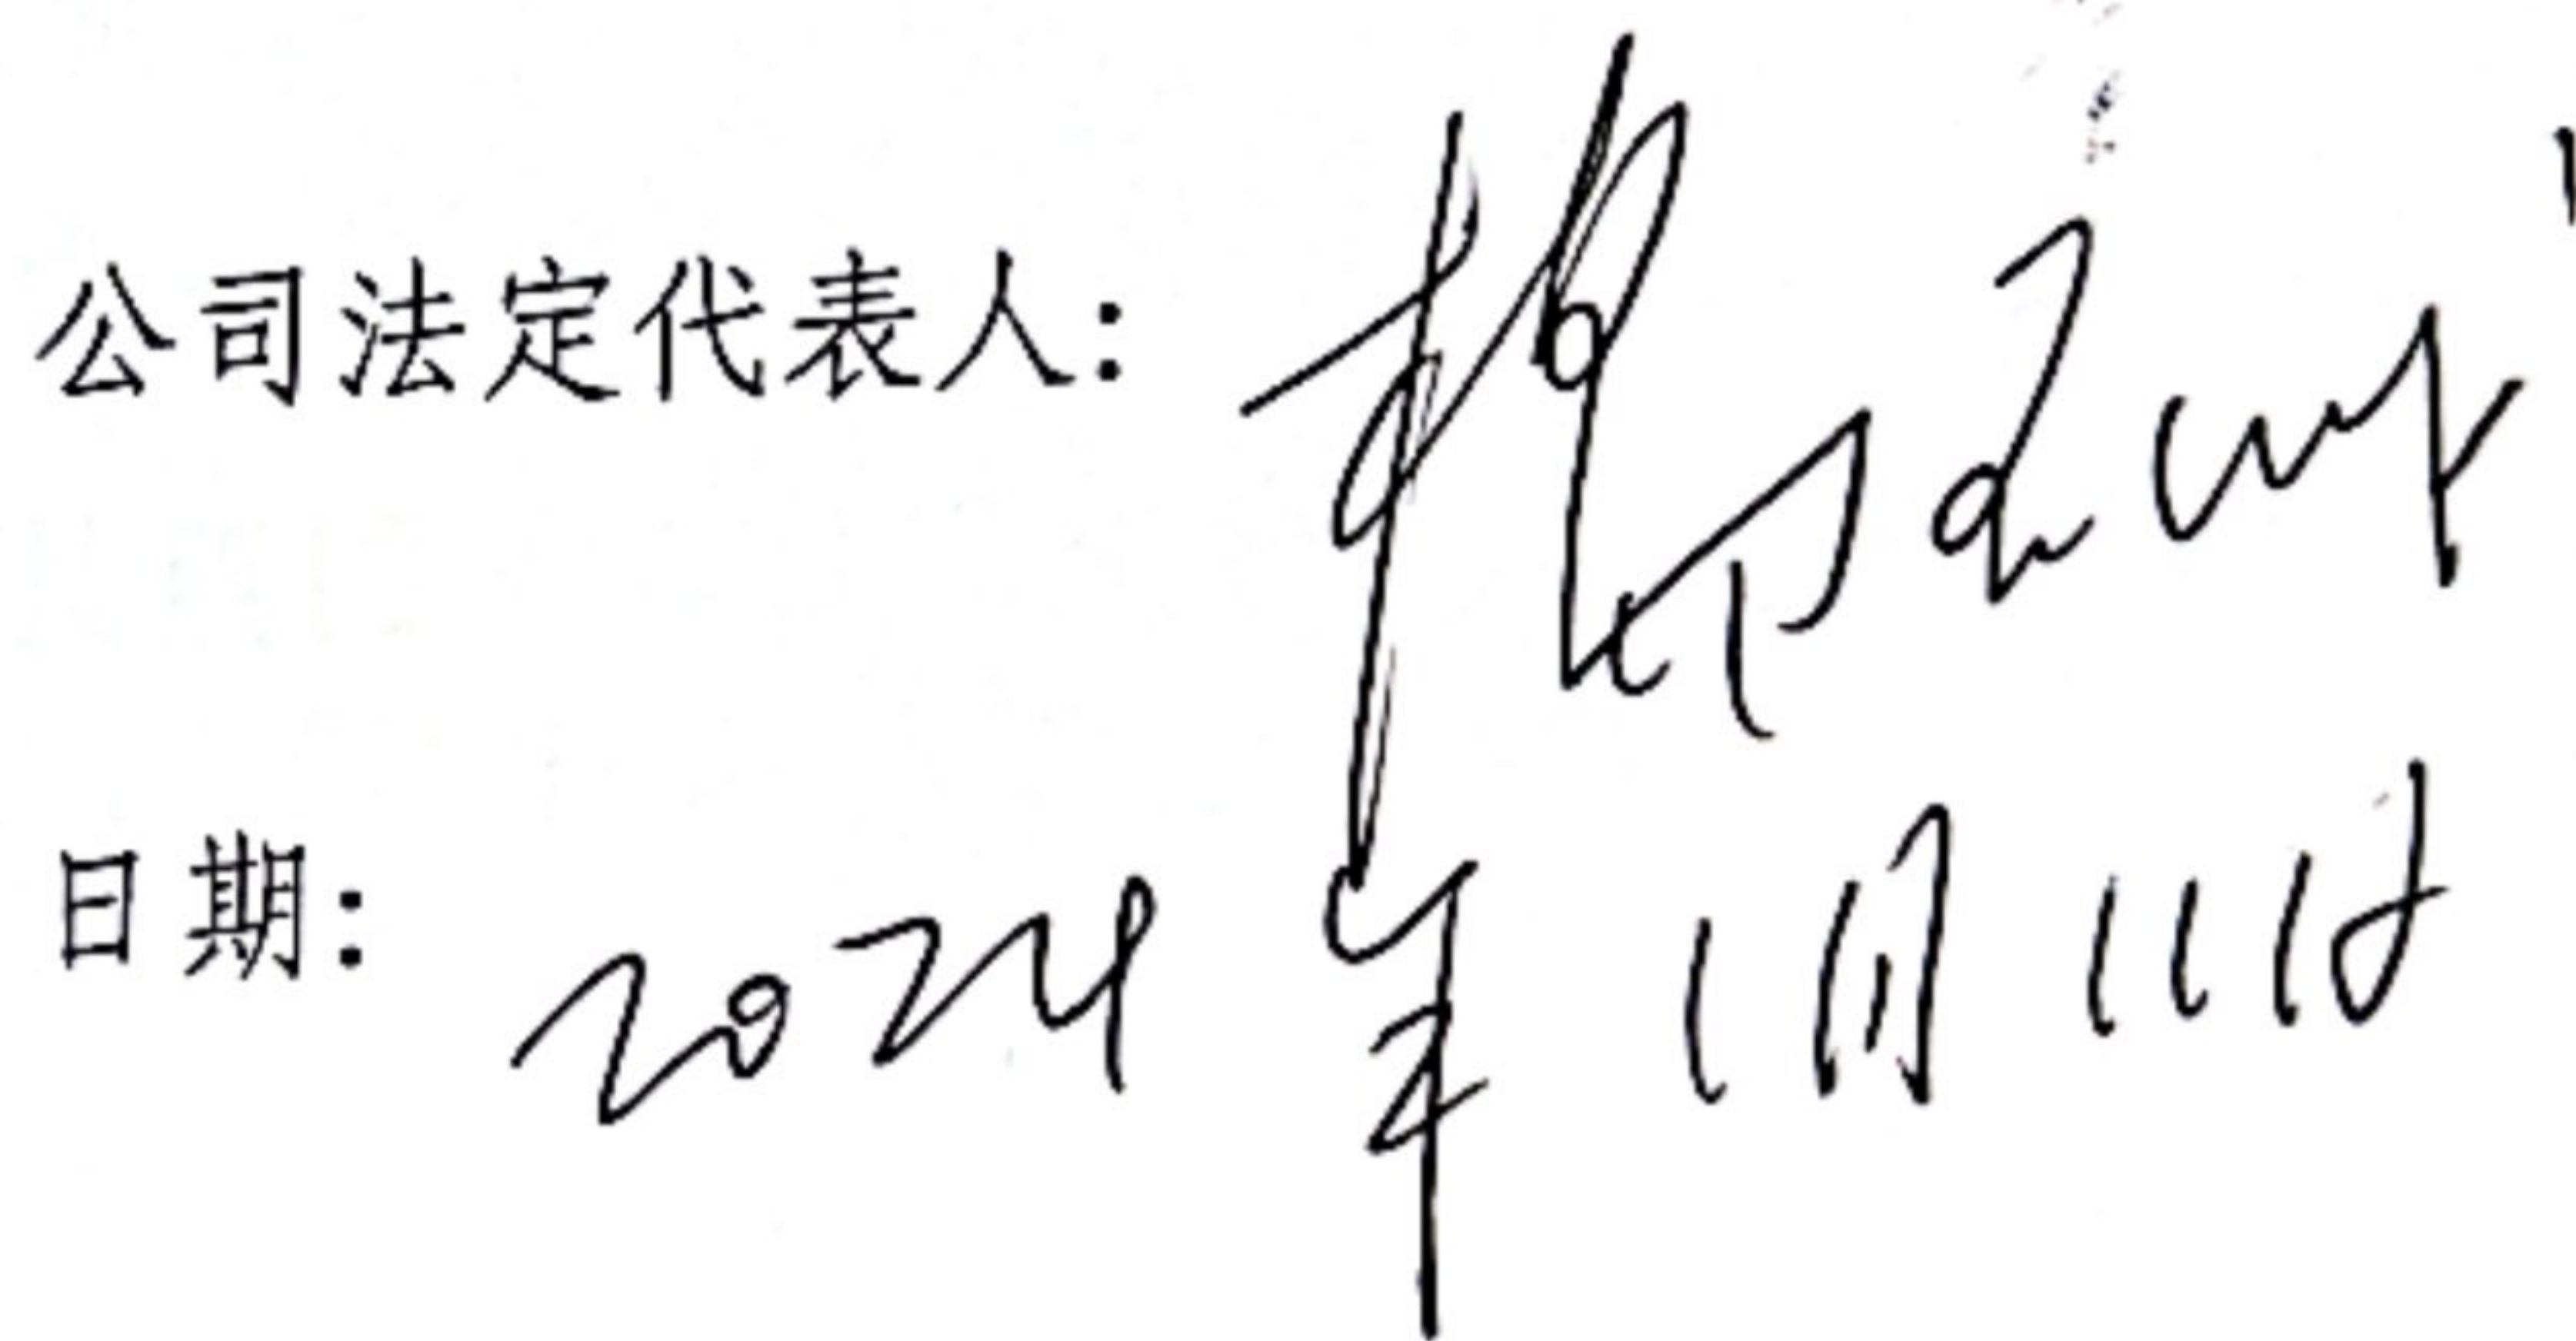 公司法定代表人:
日期: 2024年1月11日